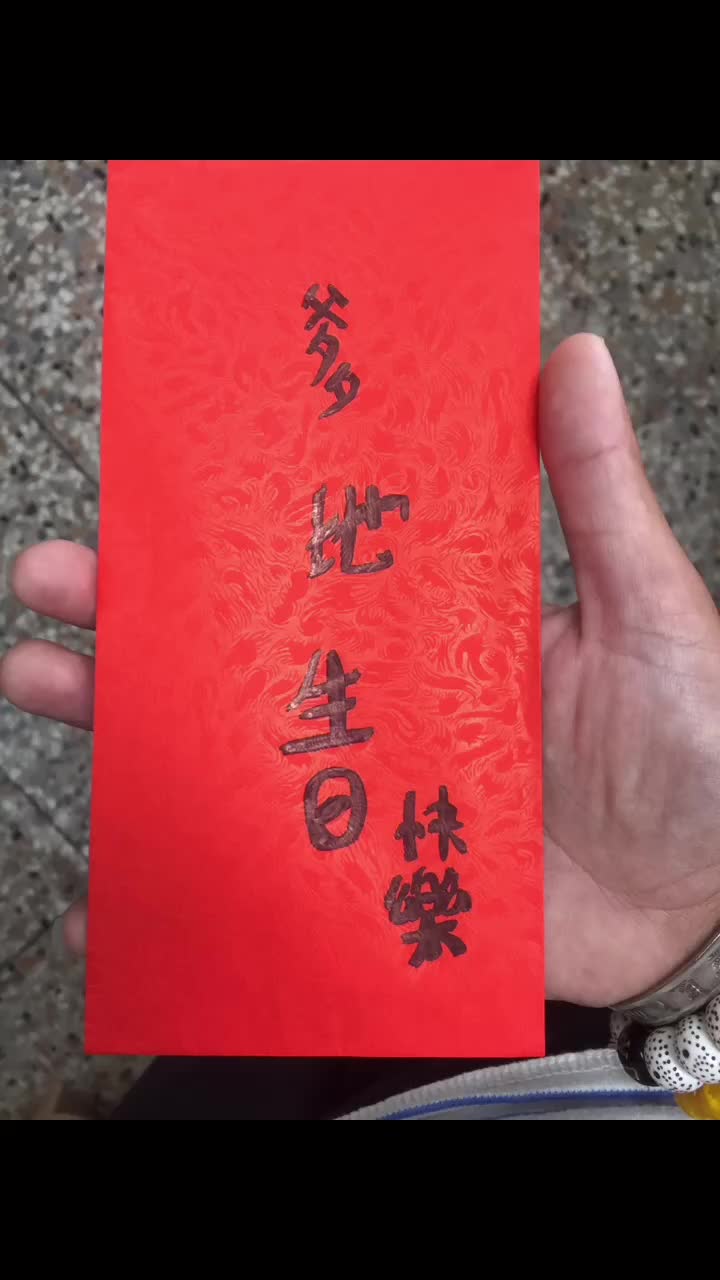 爹地生日
快樂